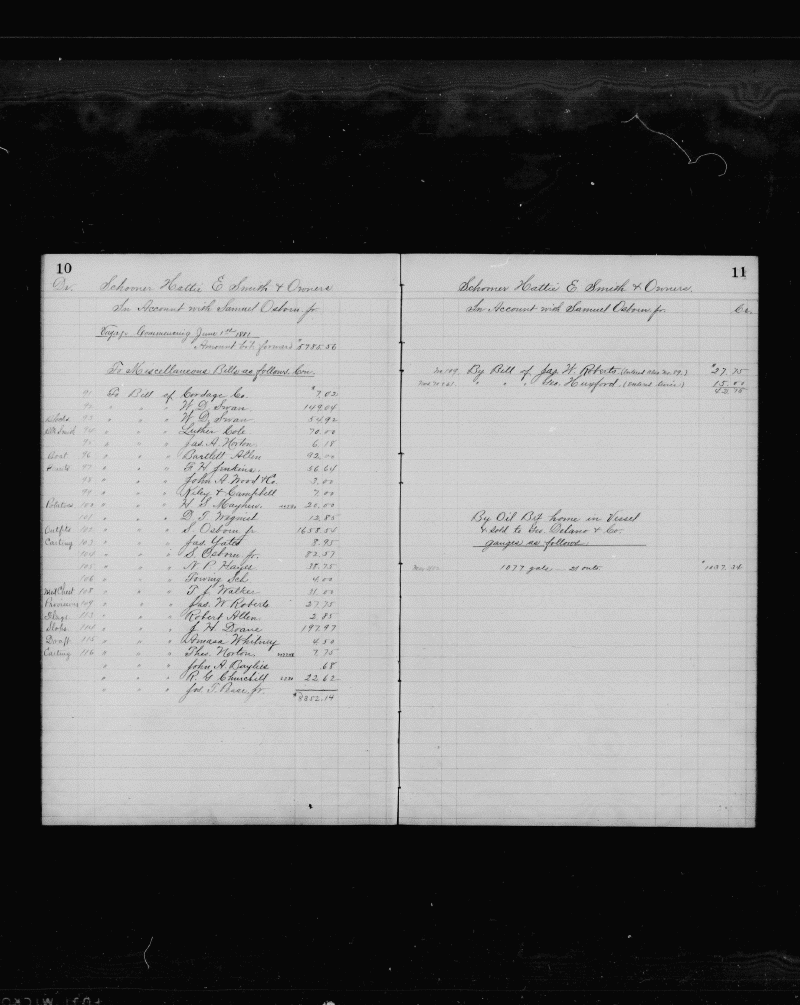 10
Dr. Schooner Hattie E Smith & Owners
In Account with Samuel Osborn Jr.
Voyage Commencing June 1st 1881
Amount bt. forward $5785.56
To Miscellaneous Bills as follows Con.
91 To Bill of Cordage Co. $7.02
92 " " " W. D. Swan 149.04
93 " " " W. D. Swan 54.92
94 " " " Luther Cole 70.00
95 " " " Jas. A. Norton 6.18
Boat 96 " " " Bartlett Allen 92.00
97 " " " F. H. Jenkins. 36.64
98 " " " John A Wood & Co. 3.00
99 " " " Kiley & Campbell 7.00
Potatoes 100 " " " H. S. Mayhew 20.00
101 " " " D. T. 12.85
Outfits 102 " " " S. Osborn Jr 1658.54
Carting 103 " " " Jas. Yates 8.95
104 " " " S. Osborn Jr. 82.57
105 " " " N. P. Hayes 38.75
106 " " " Towing Sch. 4.00
Med Chest 108 " " " T. J. Walker 11.00
Provisions 109 " " " Jas. W. Roberts 27.75
Flags 113 " " " Robert Allen 2.85
Slops 114 " " " J. H. Doane 197.97
115 " " " Amasa Whitney 4.50
Carting 116 " " " Thos. Norton 7.75
" " " " John A. Baylies .68
" " " " R. G. Churchill 22.62
" " " " Jos. T. Pease Jr.
$8352.14
11
Schooner Hattie E Smith & Owners.
In Account with Samuel Osborn Jr. Cr.
No 109. By Bill of Jas. W. Roberts $27.75
" " " Geo. Huxford. 15.00
42.75
By Oil Bt home in Vessel
& sold to Geo. Delano & Co.
gauges as follows
1077 galls 1037.34